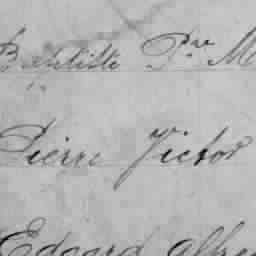 Baptiste Pre M
Pierre Victor
Edoard alfre